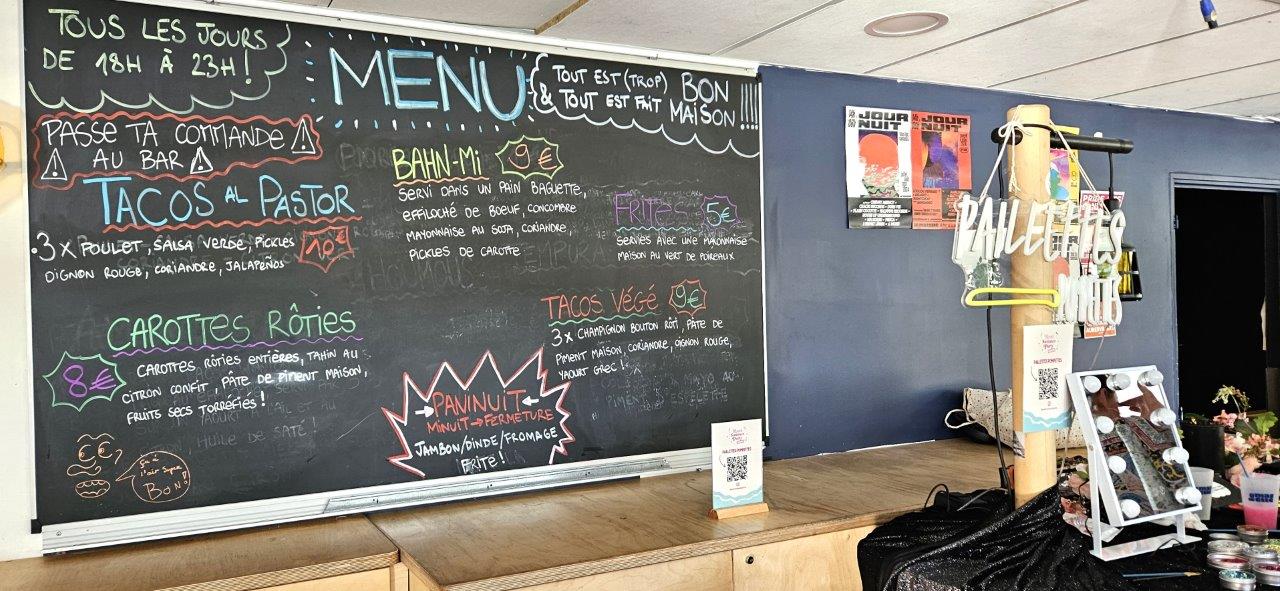 TOUS LES JOURS
DE 18H À 23H!
MENU
TOUT EST (TROP) BON
& TOUT EST FAIT MAISON !!!!
PASSE TA COMMANDE
AU BAR
TACOS AL PASTOR
3x POULET, SALSA VERDE, PICKLES
OIGNON ROUGE, CORIANDRE, JALAPEÑOS
10€
BAHN-Mi 9€
SERVI DANS UN PAIN BAGUETTE,
EFFILOCHÉ DE BOEUF, CONCOMBRE
MAYONNAISE AU SOJA, CORIANDRE,
PICKLES DE CAROTTE
FRITES 5€
SERVIES AVEC UNE MAYONNAISE
MAISON AU VERT DE POIREAUX
CAROTTES RÔTIES
8€
CAROTTES RÔTIES ENTIÈRES, TAHIN AU
CITRON CONFIT, PÂTE DE PIMENT MAISON,
FRUITS SECS TORRÉFIÉS!
HUILE DE SATÉ!
TACOS VÉGÉ 9€
3x CHAMPIGNON BOUTON RÔTI, PÂTE DE
PIMENT MAISON, CORIANDRE, OIGNON ROUGE,
YAOURT GREC!
PIMENT D'ESPELETTE
PANINUIT
MINUIT → FERMETURE
JAMBON/DINDE/FROMAGE
FRITE!
BON!
JOUR
NUIT
JOUR
NUIT
PAILLETTES
PAILLETTES POMPETTES
PAILLETTES POMPETTES